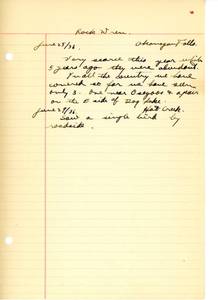 Rock Wren.
June 25/36. Okanagan Falls.
Very scarce this year while
5 years ago they were abundant.
In all the country we have
covered so far we have seen
only 3. One near Osoyoos & a pair
on the E side of Dog Lake.
June 28/36. Hat Creek.
Saw a single bird by
roadside.